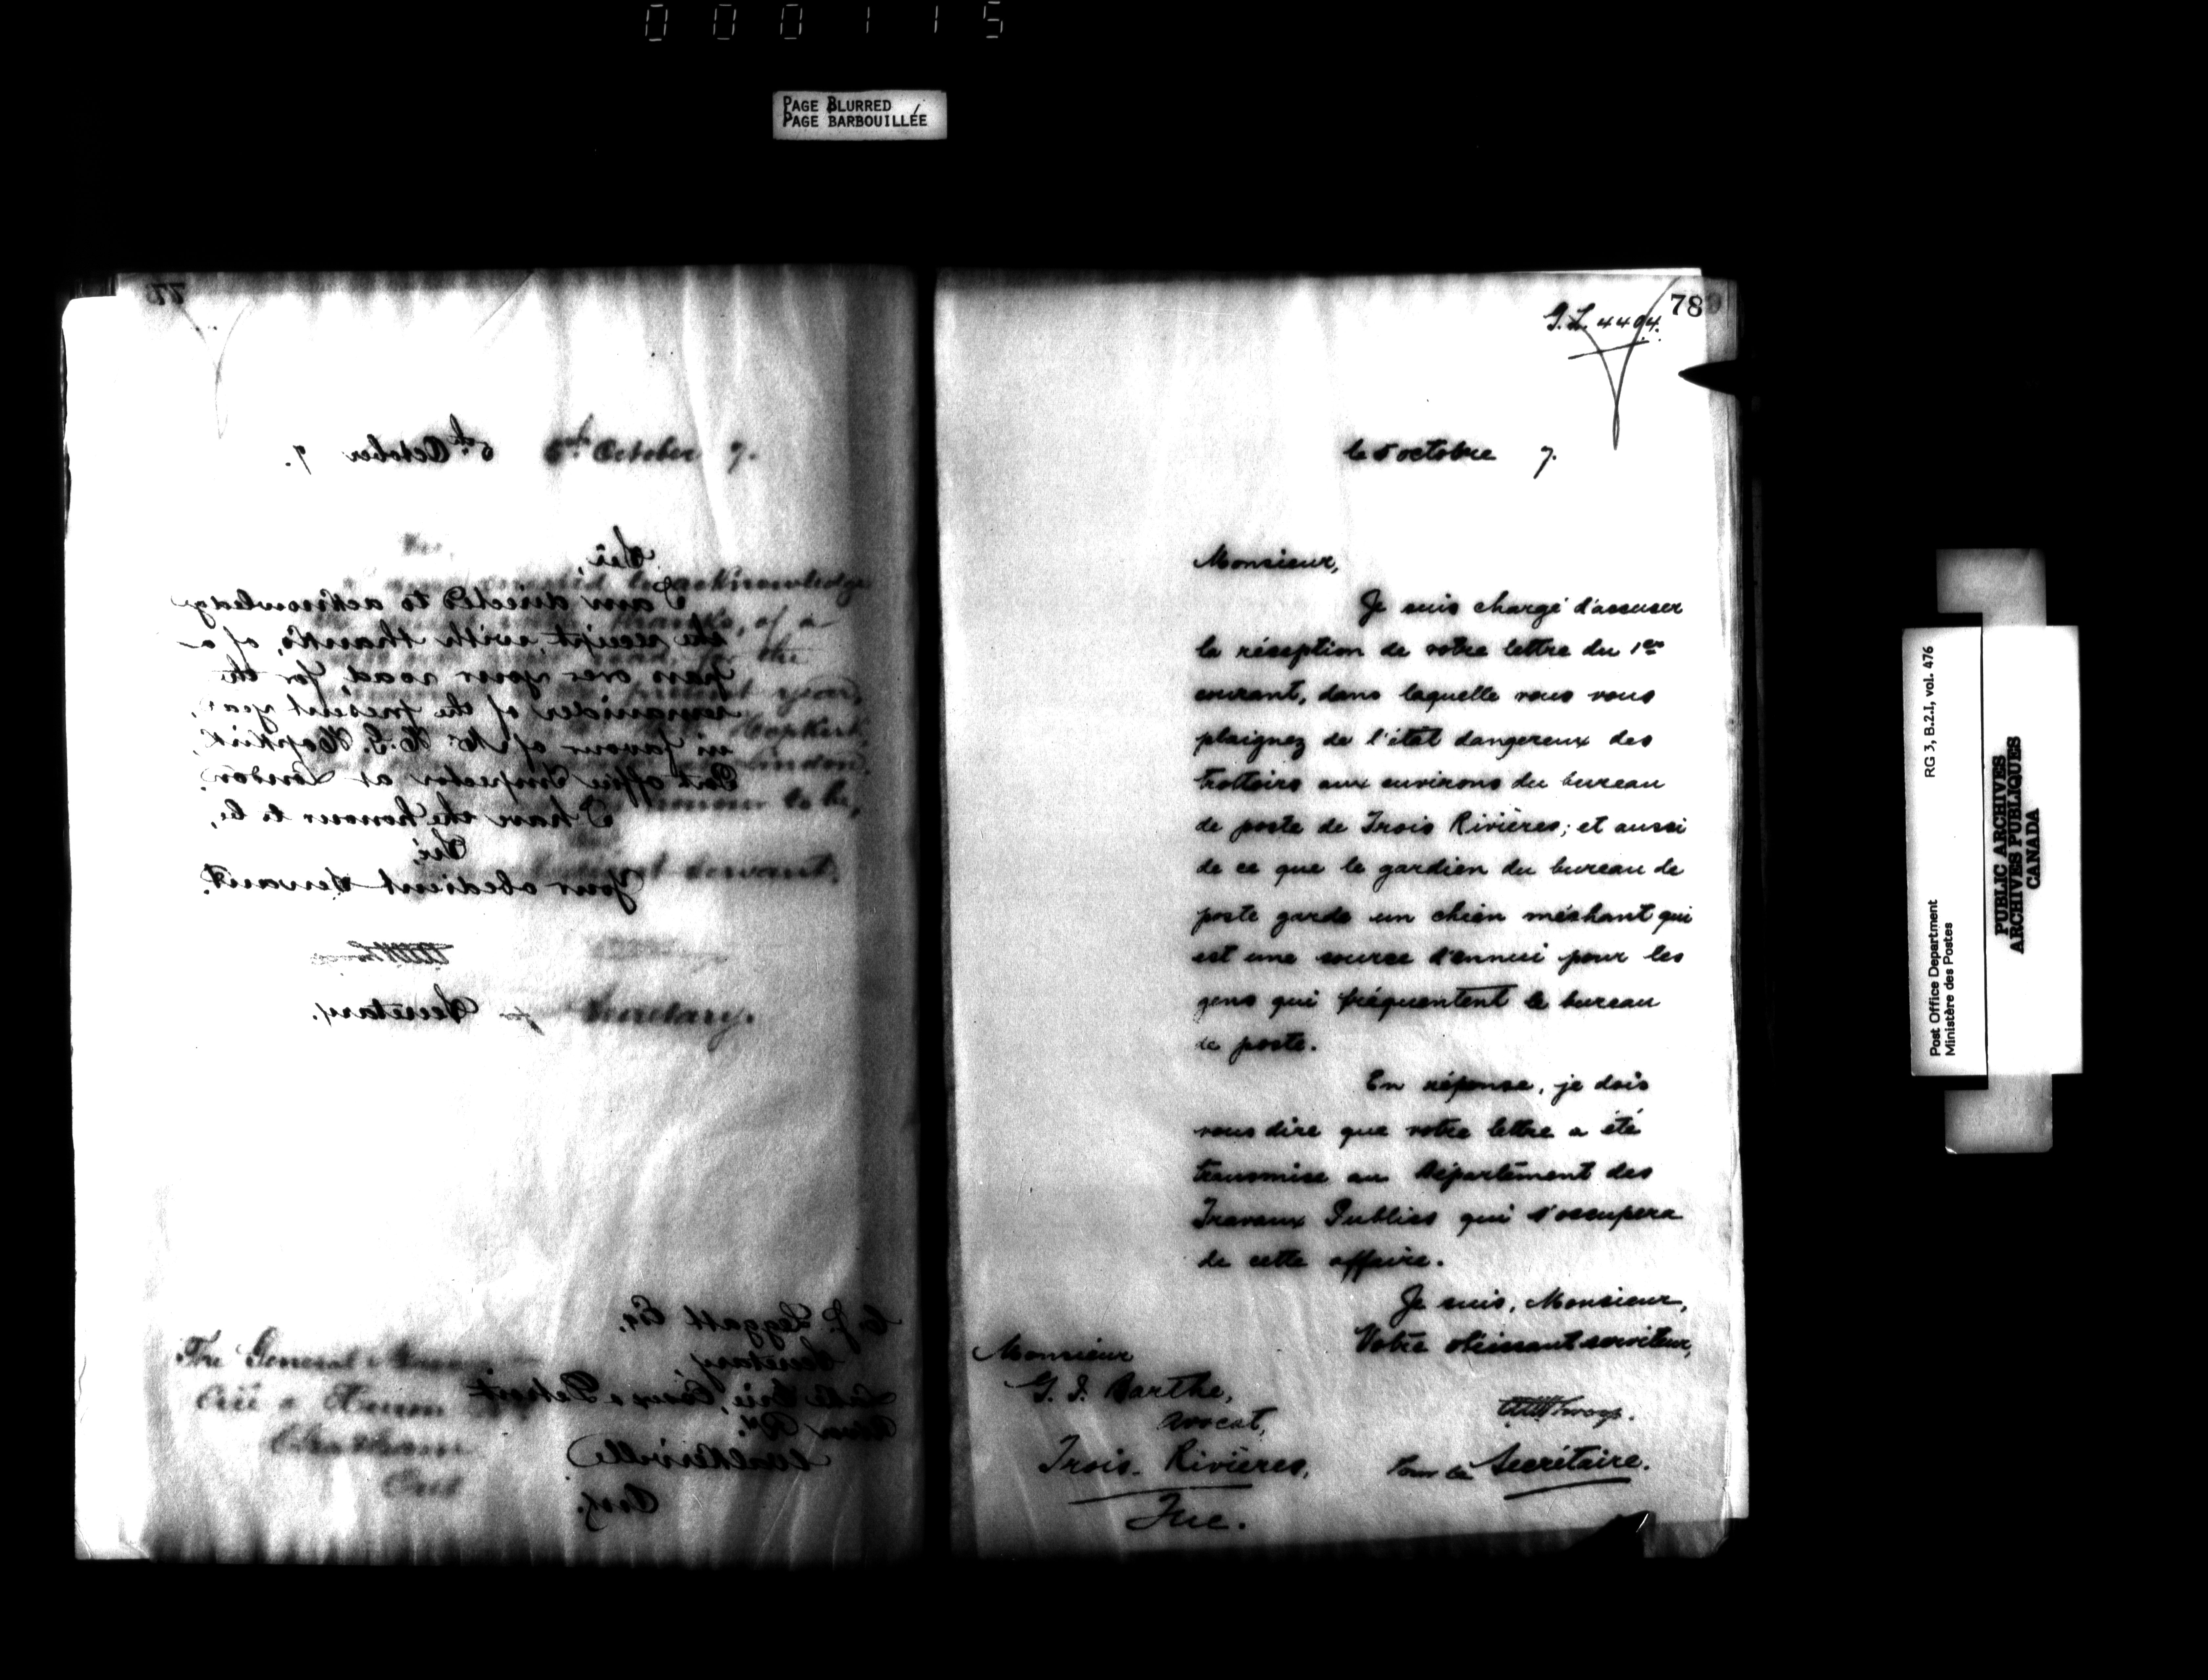 000115
PAGE BLURRED
PAGE BARBOUILLÉE
77
5th October 7.
Sir,
I am directed to acknowledge
the receipt, with thanks, of a
pass over your road, for the
remainder of the present year,
in favour of Mr H. G. Hopkirk,
Post Office Inspector at London.
I have the honour to be,
Sir,
Your obedient servant.
Secretary.
C. J. Leggatt Esq.
Secretary,
Lake Erie, Essex & Detroit
River Ry.
Walkerville
Ont.
5th October 7.
acknowledge
thanks, of a
road, for the
present year,
Hopkirk
London.
honour to be,
obedient servant.
for Secretary.
The General
Erie & Huron
Chatham
Ont
78
G.L. 4494.
le 5 octobre 7.
Monsieur,
Je suis chargé d'accuser
la réception de votre lettre du 1er
courant, dans laquelle vous vous
plaignez de l'état dangereux des
trottoirs aux environs du bureau
de poste de Trois Rivières; et aussi
de ce que le gardien du bureau de
poste garde un chien méchant qui
est une source d'ennui pour les
gens qui fréquentent le bureau
de poste.
En réponse, je dois
vous dire que votre lettre a été
transmise au Département des
Travaux Publics qui s'occupera
de cette affaire.
Je suis, Monsieur,
Votre obéissant serviteur,
Pour le Secrétaire.
Monsieur
G. I. Barthe,
avocat,
Trois-Rivières,
Que.
RG 3, B.2.I, vol. 476
Post Office Department
Ministère des Postes
PUBLIC ARCHIVES
ARCHIVES PUBLIQUES
CANADA